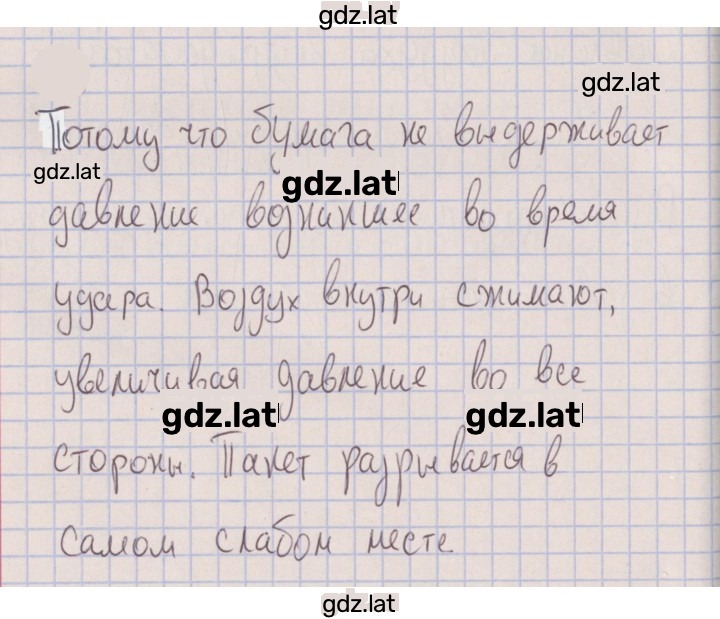 gdz.lat
gdz.lat
Потому что бумага не выдерживает
gdz.lat
gdz.lat
давление возникшее во время
удара. Воздух внутри сжимают,
увеличивая давление во все
gdz.lat
gdz.lat
стороны. Пакет разрывается в
самом слабом месте
gdz.lat